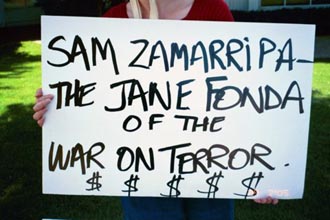 SAM ZAMARRIPA-
THE JANE FONDA
OF THE
WAR ON TERROR.
$ $ $ $ $